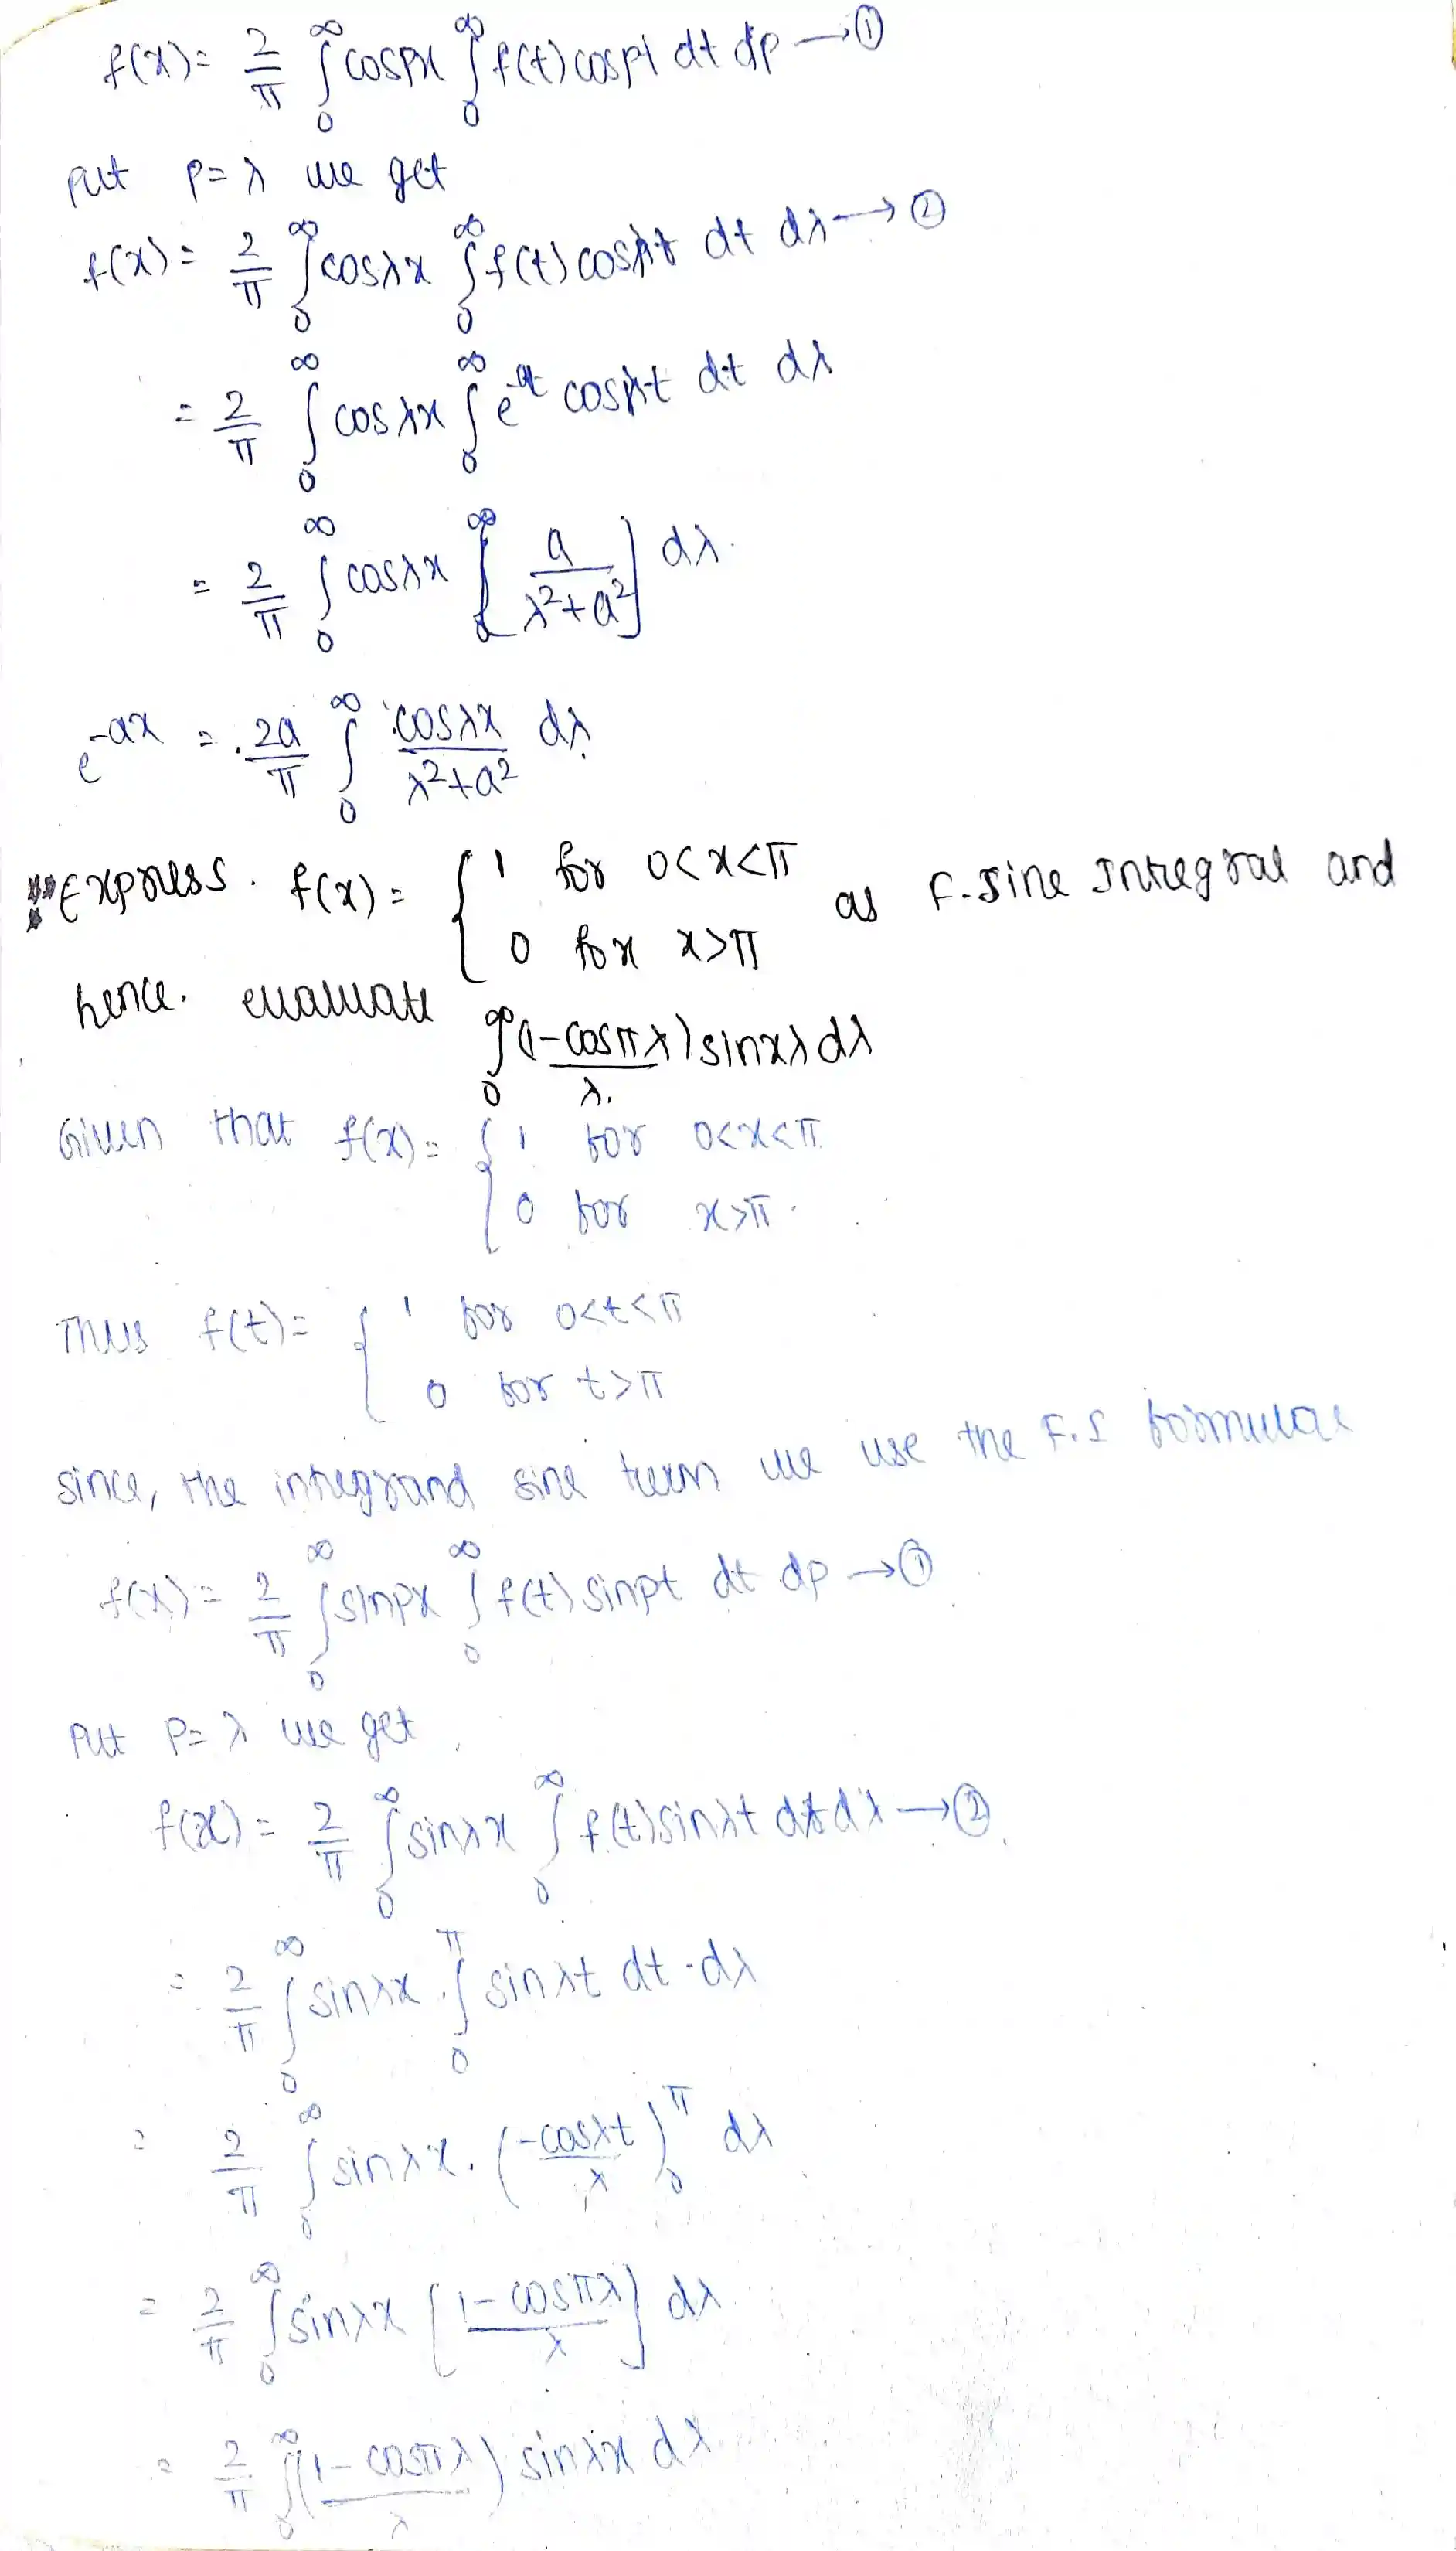 f(x) = 2/π ∫₀^∞ cospx ∫₀^∞ f(t) cospt dt dp → ①
put p = λ we get
f(x) = 2/π ∫₀^∞ cosλx ∫₀^∞ f(t) cosλt dt dλ → ②
= 2/π ∫₀^∞ cosλx ∫₀^∞ e^{-at} cosλt dt dλ
= 2/π ∫₀^∞ cosλx [a/(λ²+a²)] dλ.
e^{-ax} = 2a/π ∫₀^∞ cosλx/(λ²+a²) dλ
Express. f(x) = { 1 for 0<x<π as F.sine Integral and
0 for x>π
hence. evaluate ∫₀^∞ (1-cosπλ)/λ sinxλ dλ
Given that f(x) = { 1 for 0<x<π
0 for x>π.
Thus f(t) = { 1 for 0<t<π
0 for t>π
since, the integrand sine term we use the F.S formulae
f(x) = 2/π ∫₀^∞ sinpx ∫₀^∞ f(t) sinpt dt dp → ①
Put p = λ we get
f(x) = 2/π ∫₀^∞ sinλx ∫₀^∞ f(t) sinλt dt dλ → ②
= 2/π ∫₀^∞ sinλx . ∫₀^π sinλt dt . dλ
= 2/π ∫₀^∞ sinλx . (-cosλt/λ)₀^π dλ
= 2/π ∫₀^∞ sinλx [(1-cosπλ)/λ] dλ
= 2/π ∫₀^∞ (1-cosπλ)/λ sinλx dλ